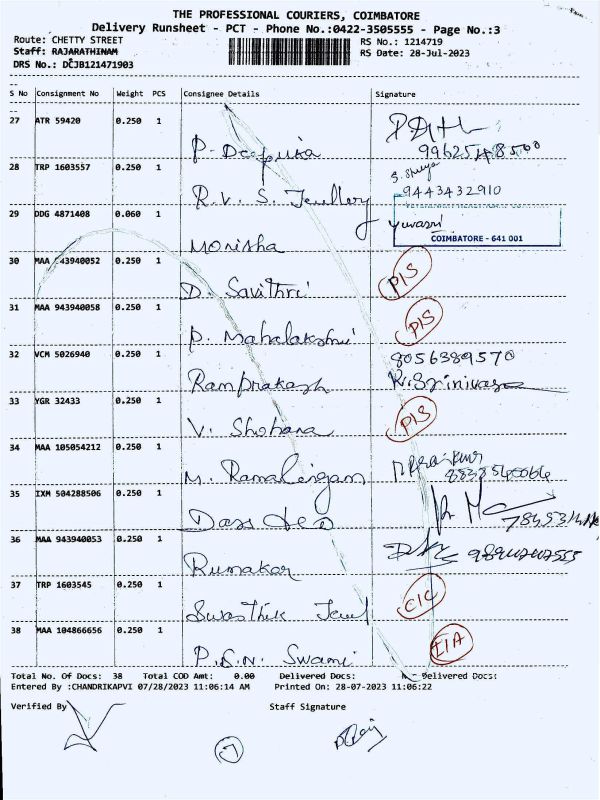 THE PROFESSIONAL COURIERS, COIMBATORE
Delivery Runsheet - PCT - Phone No.:0422-3505555 - Page No.:3
Route: CHETTY STREET RS No.: 1214719
Staff: RAJARATHINAM RS Date: 28-Jul-2023
DRS No.: DCJB121471903
S No Consignment No Weight PCS Consignee Details Signature
27 ATR 59420 0.250 1
P. Deepika
28 TRP 1603557 0.250 1
R.V. S. Jewllery 9443432910
29 DDG 4871408 0.060 1 Yuvasri
Monisha COIMBATORE - 641 001
30 MAA 943940052 0.250 1
D. Savithri PIS
31 MAA 943940058 0.250 1
P. Mahalakshmi PIS
32 VCM 5026940 0.250 1 8056389570
Ramprakash K. Srinivasan
33 YGR 32433 0.250 1
V. Shobana PIS
34 MAA 105054212 0.250 1
M. Ramalingam
35 IXM 504288506 0.250 1
36 MAA 943940053 0.250 1
37 TRP 1603545 0.250 1
Swasthik Jewl
38 MAA 104866656 0.250 1
P.S.N. Swami
Total No. Of Docs: 38 Total COD Amt: 0.00 Delivered Docs: - Delivered Docs:
Entered By :CHANDRIKAPVI 07/28/2023 11:06:14 AM Printed On: 28-07-2023 11:06:22
Verified By Staff Signature